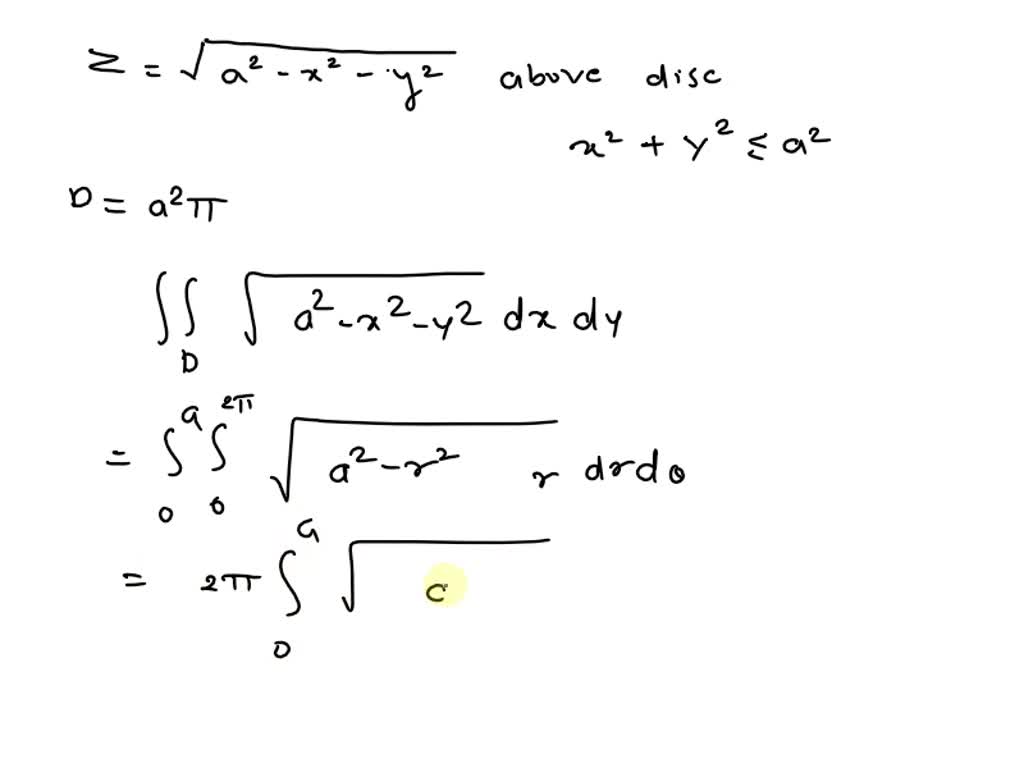 z = √(a² - x² - y²) above disc
x² + y² ≤ a²
D = a²π
∬_D √(a² - x² - y²) dx dy
= ∫₀ᵃ ∫₀^{2π} √(a² - r²) r dr dθ
= 2π ∫₀ᵃ √(c